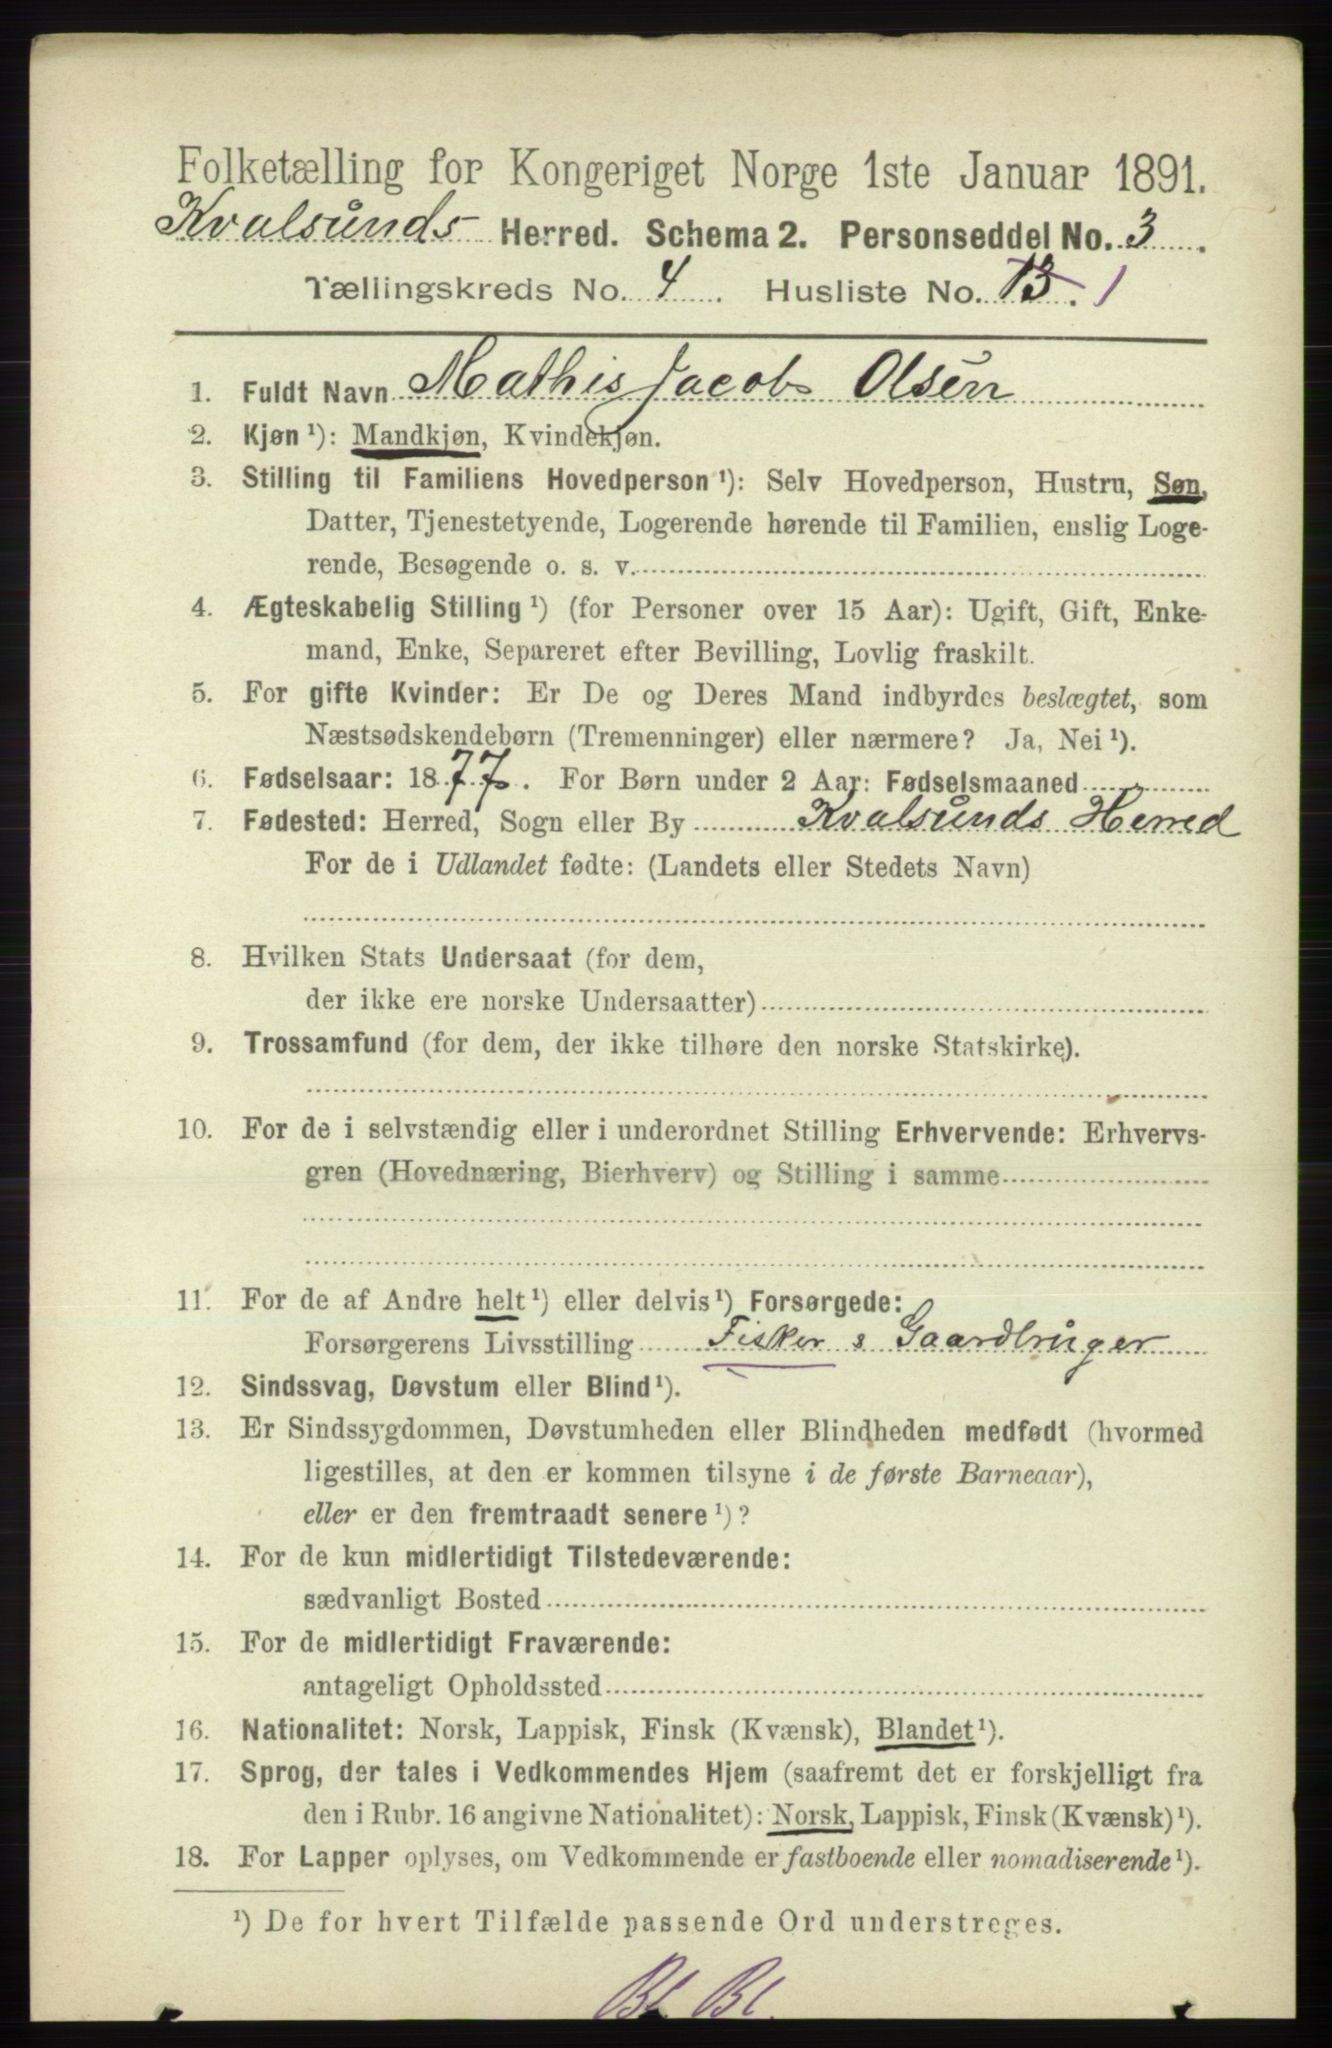 Folketælling for Kongeriget Norge 1ste Januar 1891.
Kvalsunds Herred. Schema 2. Personseddel No. 3.
Tællingskreds No. 4. Husliste No. 13. 1
1. Fuldt Navn Mathis Jacob Olsen
2. Kjøn ¹): Mandkjøn, Kvindekjøn.
3. Stilling til Familiens Hovedperson ¹): Selv Hovedperson, Hustru, Søn,
Datter, Tjenestetyende, Logerende hørende til Familien, enslig Loge-
rende, Besøgende o. s. v.
4. Ægteskabelig Stilling ¹) (for Personer over 15 Aar): Ugift, Gift, Enke-
mand, Enke, Separeret efter Bevilling, Lovlig fraskilt.
5. For gifte Kvinder: Er De og Deres Mand indbyrdes beslægtet, som
Næstsødskendebørn (Tremenninger) eller nærmere? Ja, Nei ¹).
6. Fødselsaar: 1877. For Børn under 2 Aar: Fødselsmaaned
7. Fødested: Herred, Sogn eller By Kvalsunds Herred
For de i Udlandet fødte: (Landets eller Stedets Navn)
8. Hvilken Stats Undersaat (for dem,
der ikke ere norske Undersaatter)
9. Trossamfund (for dem, der ikke tilhøre den norske Statskirke).
10. For de i selvstændig eller i underordnet Stilling Erhvervende: Erhvervs-
gren (Hovednæring, Bierhverv) og Stilling i samme
11. For de af Andre helt ¹) eller delvis ¹) Forsørgede:
Forsørgerens Livsstilling Fisker & Gaardbruger
12. Sindssvag, Døvstum eller Blind ¹).
13. Er Sindssygdommen, Døvstumheden eller Blindheden medfødt (hvormed
ligestilles, at den er kommen tilsyne i de første Barneaar),
eller er den fremtraadt senere ¹)?
14. For de kun midlertidigt Tilstedeværende:
sædvanligt Bosted
15. For de midlertidigt Fraværende:
antageligt Opholdssted
16. Nationalitet: Norsk, Lappisk, Finsk (Kvænsk), Blandet ¹).
17. Sprog, der tales i Vedkommendes Hjem (saafremt det er forskjelligt fra
den i Rubr. 16 angivne Nationalitet): Norsk, Lappisk, Finsk (Kvænsk) ¹).
18. For Lapper oplyses, om Vedkommende er fastboende eller nomadiserende ¹).
¹) De for hvert Tilfælde passende Ord understreges.
Bl Bl.